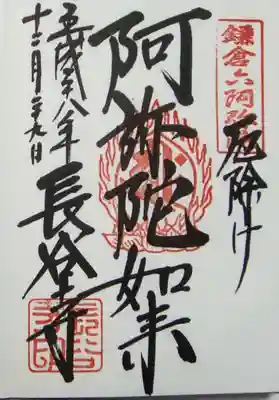 鎌倉六阿弥
厄除け
阿弥陀如来
平成十八年
十二月二十九日
長谷寺